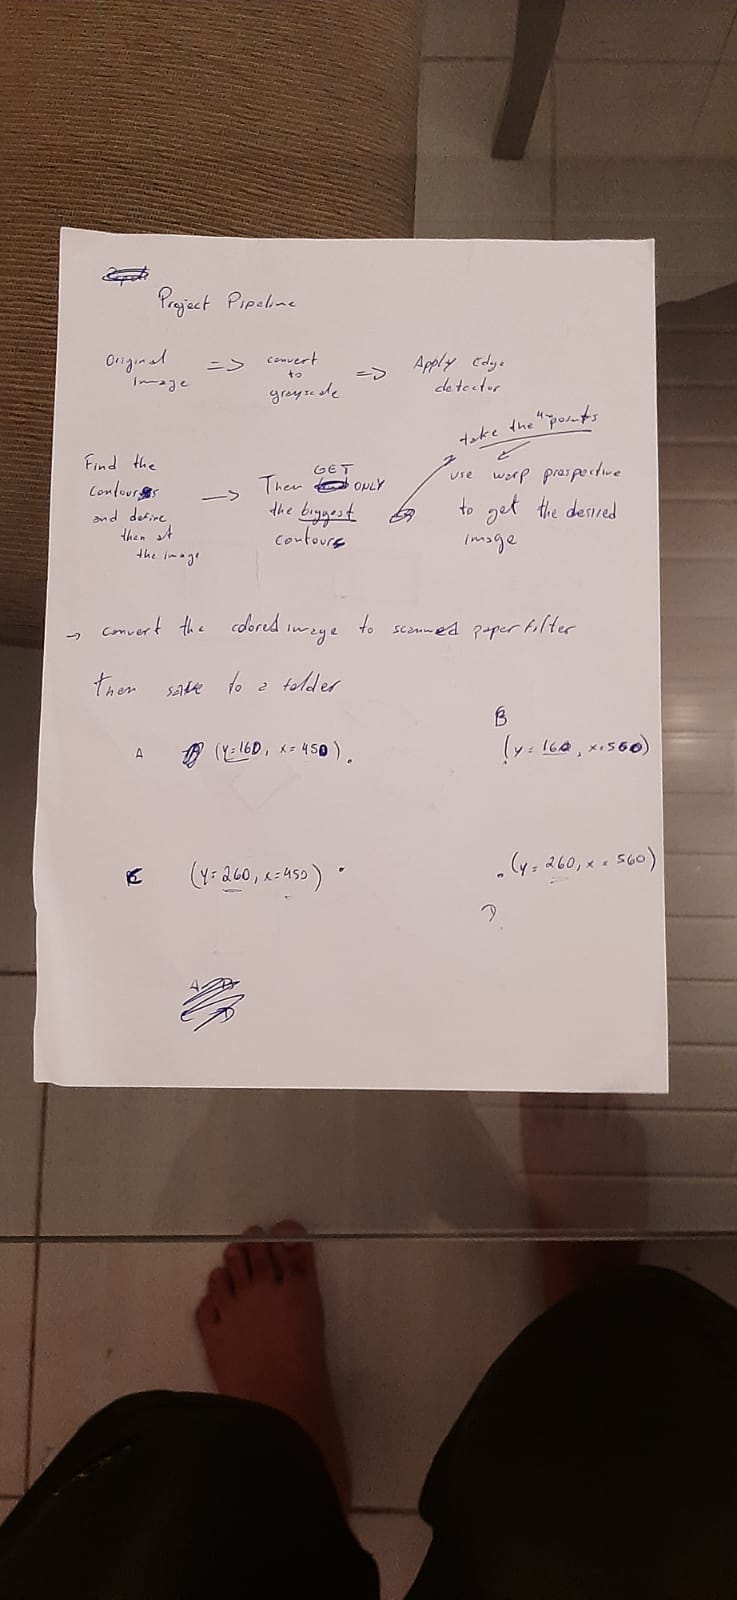 Project Pipeline
Original image => convert to greyscale => Apply Edge detector
take the 4 points
Find the contours and define then at the image -> Then GET ONLY the biggest contours
use warp prespective to get the desired image
-> convert the colored image to scanned paper filter
Then save to a folder
A (y=160, x=450).
B
(y=160, x=560)
C (y=260, x=450) .
.(y=260, x=560)
D